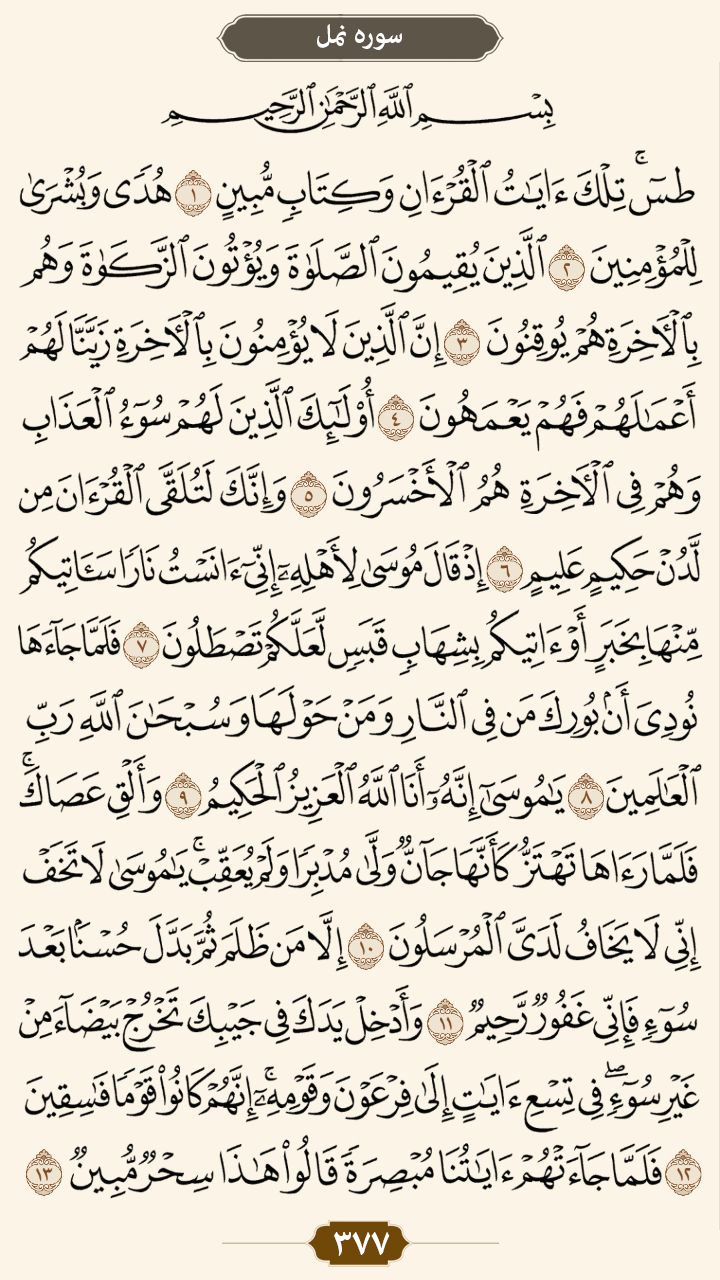 سوره نمل
بِسْمِ ٱللَّهِ ٱلرَّحْمَٰنِ ٱلرَّحِيمِ
طسٓ ۚ تِلْكَ ءَايَٰتُ ٱلْقُرْءَانِ وَكِتَابٍ مُّبِينٍ ١ هُدًى وَبُشْرَىٰ
لِلْمُؤْمِنِينَ ٢ ٱلَّذِينَ يُقِيمُونَ ٱلصَّلَوٰةَ وَيُؤْتُونَ ٱلزَّكَوٰةَ وَهُم
بِٱلْأَخِرَةِ هُمْ يُوقِنُونَ ٣ إِنَّ ٱلَّذِينَ لَا يُؤْمِنُونَ بِٱلْأَخِرَةِ زَيَّنَّا لَهُمْ
أَعْمَٰلَهُمْ فَهُمْ يَعْمَهُونَ ٤ أُوْلَٰٓئِكَ ٱلَّذِينَ لَهُمْ سُوٓءُ ٱلْعَذَابِ
وَهُمْ فِى ٱلْأَخِرَةِ هُمُ ٱلْأَخْسَرُونَ ٥ وَإِنَّكَ لَتُلَقَّى ٱلْقُرْءَانَ مِن
لَّدُنْ حَكِيمٍ عَلِيمٍ ٦ إِذْ قَالَ مُوسَىٰ لِأَهْلِهِۦٓ إِنِّىٓ ءَانَسْتُ نَارًا سَـَٔاتِيكُم
مِّنْهَا بِخَبَرٍ أَوْ ءَاتِيكُم بِشِهَابٍ قَبَسٍ لَّعَلَّكُمْ تَصْطَلُونَ ٧ فَلَمَّا جَآءَهَا
نُودِىَ أَنۢ بُورِكَ مَن فِى ٱلنَّارِ وَمَنْ حَوْلَهَا وَسُبْحَٰنَ ٱللَّهِ رَبِّ
ٱلْعَٰلَمِينَ ٨ يَٰمُوسَىٰٓ إِنَّهُۥٓ أَنَا ٱللَّهُ ٱلْعَزِيزُ ٱلْحَكِيمُ ٩ وَأَلْقِ عَصَاكَ ۚ
فَلَمَّا رَءَاهَا تَهْتَزُّ كَأَنَّهَا جَآنٌّ وَلَّىٰ مُدْبِرًا وَلَمْ يُعَقِّبْ ۚ يَٰمُوسَىٰ لَا تَخَفْ
إِنِّى لَا يَخَافُ لَدَىَّ ٱلْمُرْسَلُونَ ١٠ إِلَّا مَن ظَلَمَ ثُمَّ بَدَّلَ حُسْنًۢا بَعْدَ
سُوٓءٍ فَإِنِّى غَفُورٌ رَّحِيمٌ ١١ وَأَدْخِلْ يَدَكَ فِى جَيْبِكَ تَخْرُجْ بَيْضَآءَ مِنْ
غَيْرِ سُوٓءٍ ۖ فِى تِسْعِ ءَايَٰتٍ إِلَىٰ فِرْعَوْنَ وَقَوْمِهِۦٓ ۚ إِنَّهُمْ كَانُوا۟ قَوْمًا فَٰسِقِينَ
١٢ فَلَمَّا جَآءَتْهُمْ ءَايَٰتُنَا مُبْصِرَةً قَالُوا۟ هَٰذَا سِحْرٌ مُّبِينٌ ١٣
٣٧٧